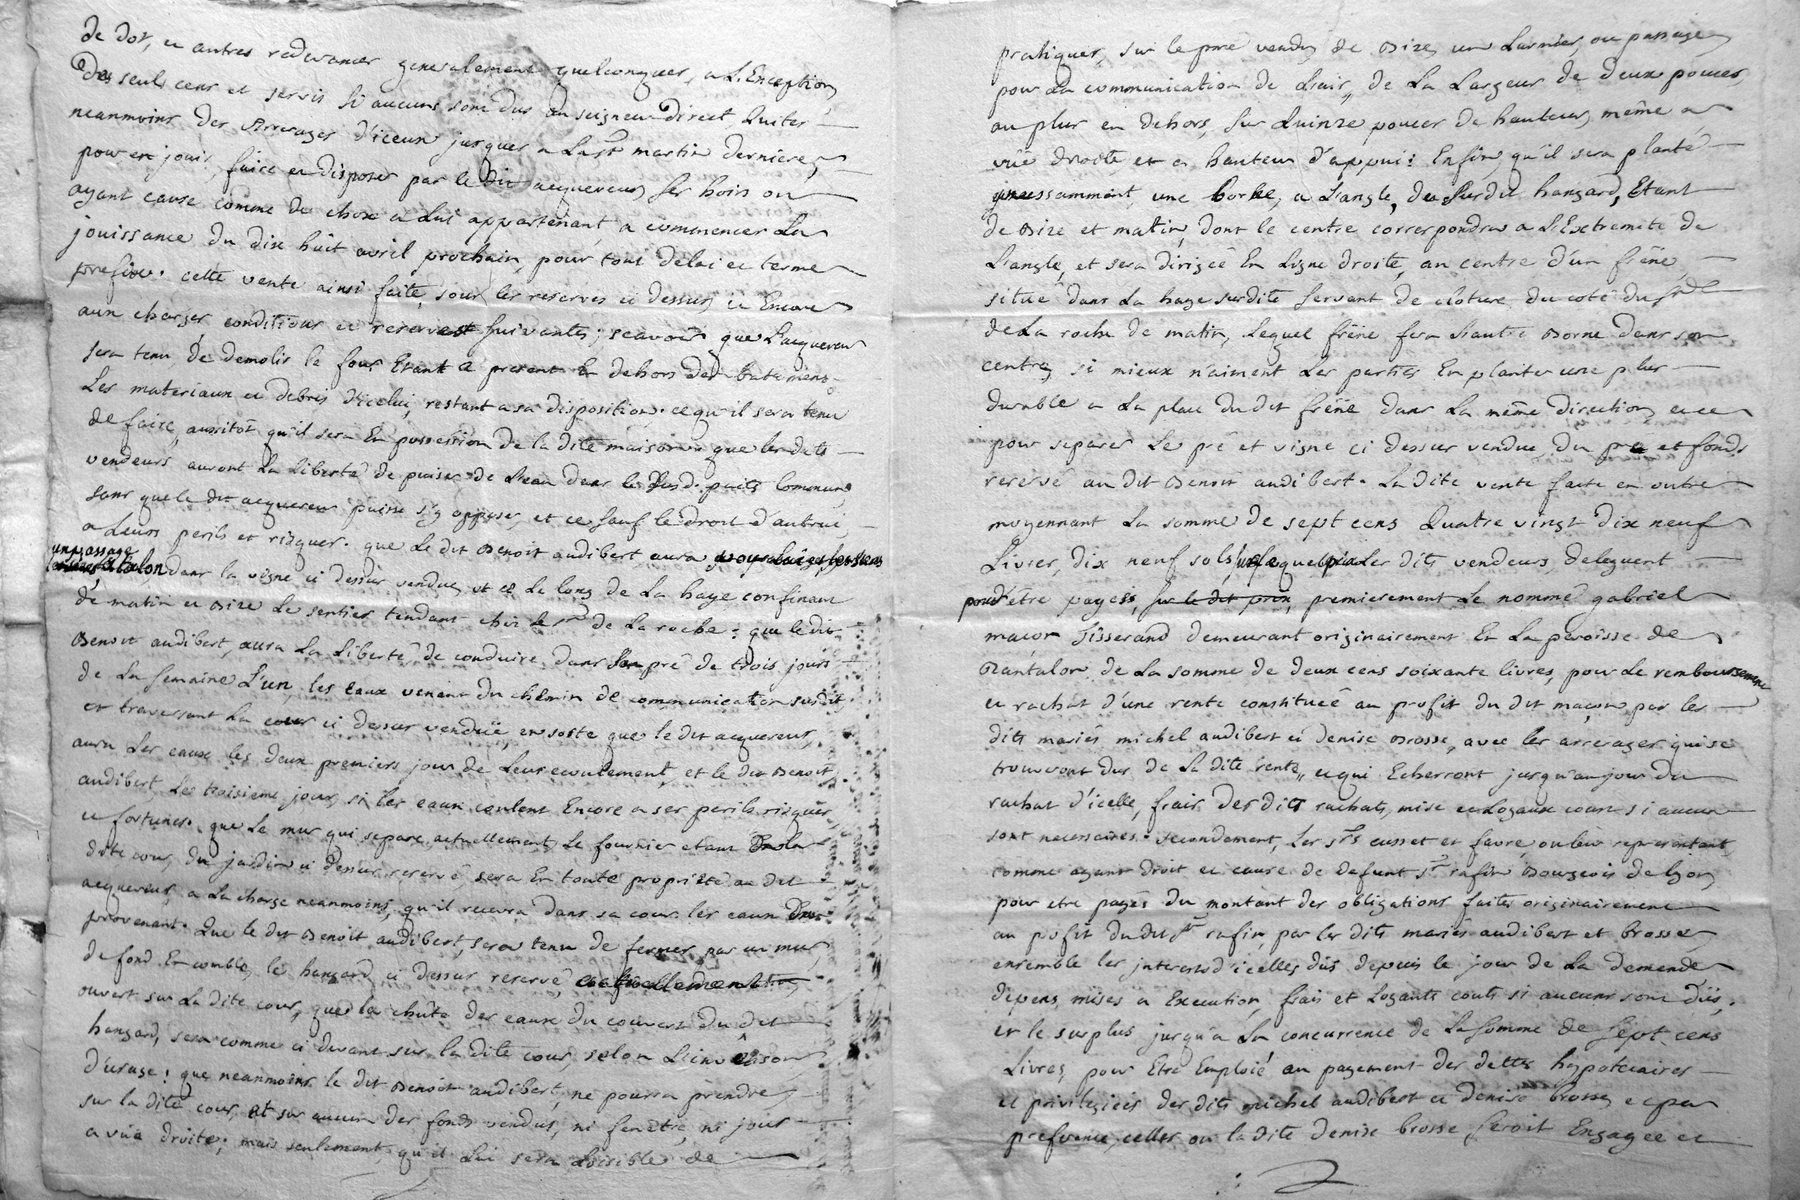 de dot, et autres redevances generalement quelconques, a L'Exception
des seuls cens et servis si aucuns sont dus au seigneur direct, quites
neanmoins des arrerages d'iceux jusques a La st martin derniere,
pour en jouir, faire en disposer par le dit acquereur, ses hoirs ou
ayant cause comme de chose a Lui appartenant, a commencer La
jouissance du dix huit avril prochain, pour tout delai et terme
prefix. cette vente ainsi faite, sous les reserves ci dessus, et Encore
aux charges conditions et reserves suivantes; scavoir que L'acquereur
sera tenu de demolir le four Etant a present En dehors des batimens
Les materiaux et debris d'icelui, restant a sa disposition. ce qu'il sera tenu
de faire, aussitôt qu'il sera En possession de la dite maison que les dits
vendeurs auront La Liberté de puiser de L'eau dans le susd. puits Commun
sans que le dit acquereur puisse s'y opposer, et ce sauf le droit d'autrui,
a Leurs perils et risques. que Le dit Benoit audibert aura
un passage
dans la vigne ci dessus vendue, et ce le long de La haye confinant
de matin et bize Le sentier tendant chez le sr de La roche; que le dit
Benoit audibert, aura La Liberté de conduire dans son pré de trois jours
de La semaine L'un, les Eaux venant du chemin de communication susdit
et traversant La cour ci dessus venduë ensorte que le dit acquereur,
aura Les eaux les deux premiers jour de Leur ecoulement, et le dit Benoit
audibert, Le troisieme jour, si les eaux coulent Encore a ses perils risques
et fortunes. que Le mur qui separe actuellement Le fournier etant dans la
dite cour, du jardin ci dessus reservé, sera En toute proprieté au dit
acquereur, a La charge neanmoins, qu'il recevra dans sa cour les eaux
provenant. Que le dit Benoit audibert, sera tenu de fermer par un mur,
de fond En comble, le hangard ci dessus reservé,
ouvert sur La dite cour, que la chûte des eaux du couvert du dit
hangard, sera comme ci devant sur la dite cour, selon
d'usage: que neanmoins le dit Benoit audibert, ne pourra prendre
sur la dite cour, et sur aucun des fonds vendus, ni fenêtre, ni jour
a vüe droite; mais seulement qu'il Lui sera Loisible de
pratiquer, sur le pré vendu de bize, un Larmier, ou passage
pour La communication de L'air, de La Largeur de deux pouces
au plus en dehors, sur Quinze pouces de hauteur, même a
vüe droite et a hauteur d'appui: Enfin, qu'il sera planté
incessamment une borne, a L'angle, du susdit hangard, Etant
de bize et matin, dont le centre correspondra a L'Extremité de
L'angle, et sera dirigée En Ligne droite, au centre d'un frêne,
situé dans La haye surdite servant de cloture du coté du sr
de La roche de matin, Lequel frêne sera L'autre borne dans son
centre, si mieux n'aiment Les parties En planter une plus
durable a La place du dit frêne dans La même direction, et ce
pour separer Le pré et vigne ci dessus vendue, du pré et fonds
reservé au dit Benoit audibert. La dite vente faite en outre
moyennant La somme de sept cens Quatre vingt dix neuf
Livres, dix neuf sols, Les dits vendeurs deleguent
pour être payés, sur le dit prix, premierement Le nommé gabriel
maçon Tisserand demeurant originairement En La paroisse de
Pantalon, de La somme de deux cens soixante livres, pour Le remboursement
et rachat d'une rente constituée au profit du dit maçon par les
dits mariés michel audibert et denise brosse, avec les arrerages qui se
trouveront dus de La dite rente, et qui Echerront jusqu'au jour du
rachat d'icelle, frais des dits rachats, mise et Loyaux couts si aucun
sont necessaires. secondement, Les srs cusset et favre, ou leur representant
comme ayant droit et cause de defunt sr rafin Bourgeois de lyon,
pour etre payés du montant des obligations faites originairement
au profit du dit sr rafin, par les dits mariés audibert et brosse
ensemble les interets d'icelles dûs depuis le jour de La demande
depens, mises a Execution, frais et Loyaux couts si aucuns sont dûs,
et le surplus jusqu'a La concurrence de La somme de sept cens
Livres, pour Etre Emploié au payement des dettes hypotecaires
et privilegiées des dits michel audibert et denise brosse, et par
preference, celles ou la dite denise brosse seroit Engagée et